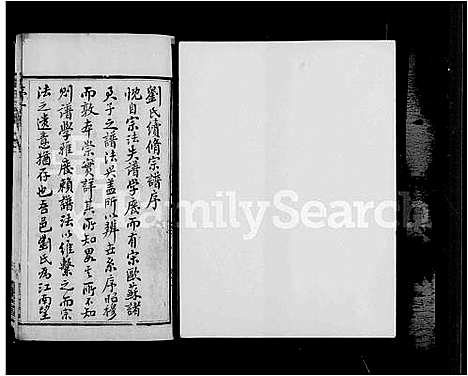 劉氏續脩宗譜序
慨自宗法失譜學廢而有宗歐蘇諸
君子之譜法興蓋所以辨世系序昭穆
而敦本崇實詳其所知畧其所不知
則譜學雖廢賴譜法以維繫之而宗
法之遺意猶存也吾邑劉氏為江南望
FamilySearch